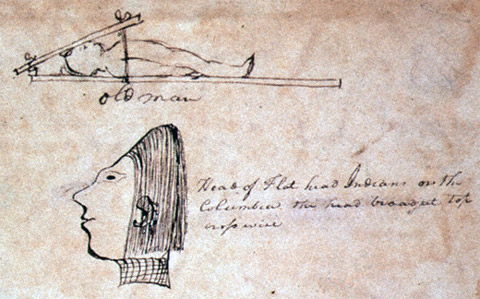 old man
Head of Flat head Indians on the
Columbia the head Top